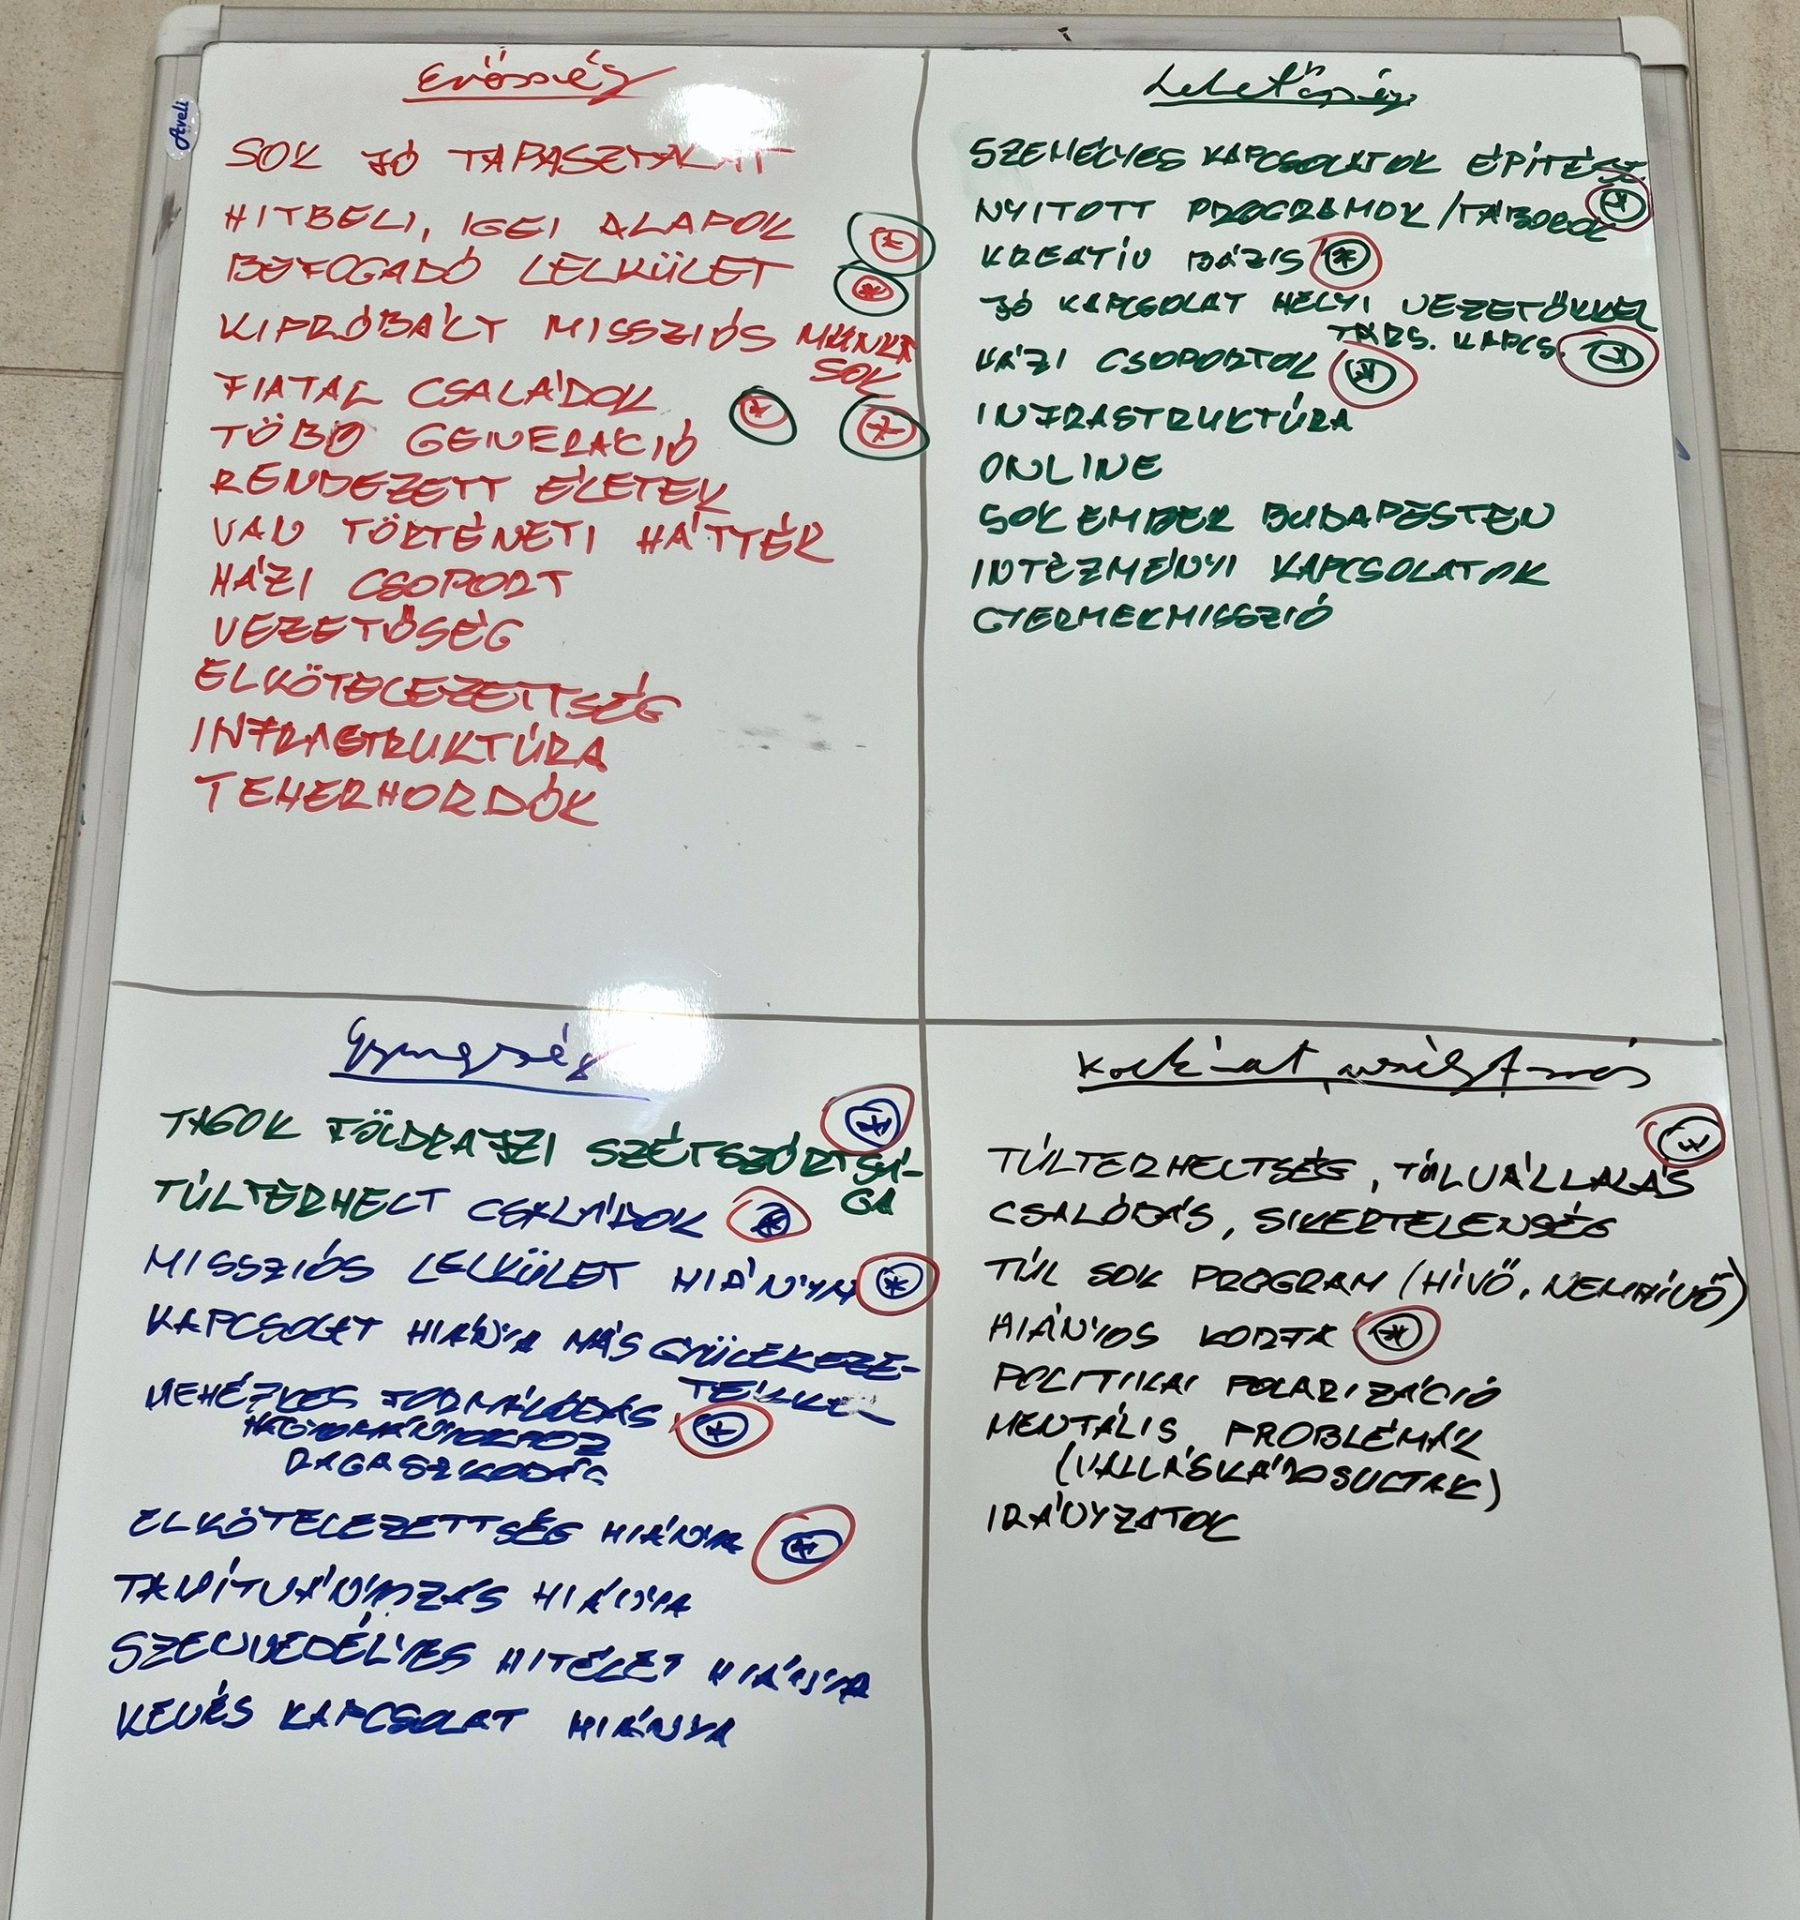 Aveli
Erősség
SOK JÓ TAPASZTALAT
HITBELI, IGEI ALAPOK
BEFOGADÓ LELKÜLET
KIPRÓBÁLT MISSZIÓS MUNKA
SOK
FIATAL CSALÁDOK
TÖBB GENERÁCIÓ
RENDEZETT ÉLETEK
VAN TÖRTÉNETI HÁTTÉR
HÁZI CSOPORT
VEZETŐSÉG
ELKÖTELEZETTSÉG
INFRASTRUKTÚRA
TEHERHORDÓK
Lehetőség
SZEMÉLYES KAPCSOLATOK ÉPÍTÉSE
NYITOTT PROGRAMOK/TÁBOROK
KREATÍV BÁZIS
JÓ KAPCSOLAT HELYI VEZETŐKKEL
TÁRS. KAPCS.
HÁZI CSOPORTOK
INFRASTRUKTÚRA
ONLINE
SOK EMBER BUDAPESTEN
INTÉZMÉNYI KAPCSOLATOK
GYERMEKMISSZIÓ
Gyengeség
TAGOK FÖLDRAJZI SZÉTSZÓRTSÁ-
GA
TÚLTERHELT CSALÁDOK
MISSZIÓS LELKÜLET HIÁNYA
KAPCSOLAT HIÁNYA MÁS GYÜLEKEZE-
TEKKEL
NEHÉZKES FORMÁLÓDÁS
HAGYOMÁNYOKHOZ
RAGASZKODÁS
ELKÖTELEZETTSÉG HIÁNYA
TANÍTVÁNYOZÁS HIÁNYA
SZENVEDÉLYES HITÉLET HIÁNYA
KEVÉS KAPCSOLAT HIÁNYA
Kockázat, veszélyforrás
TÚLTERHELTSÉG, TÚLVÁLLALÁS
CSALÓDÁS, SIKERTELENSÉG
TÚL SOK PROGRAM (HÍVŐ, NEMHÍVŐ)
HIÁNYOS KORFA
POLITIKAI POLARIZÁCIÓ
MENTÁLIS PROBLÉMÁK
(VALLÁSKÁROSULTAK)
IRÁNYZATOK